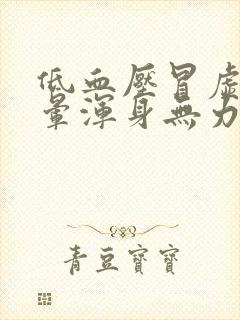 低血壓冒虛
暈渾身無力
青豆寶寶